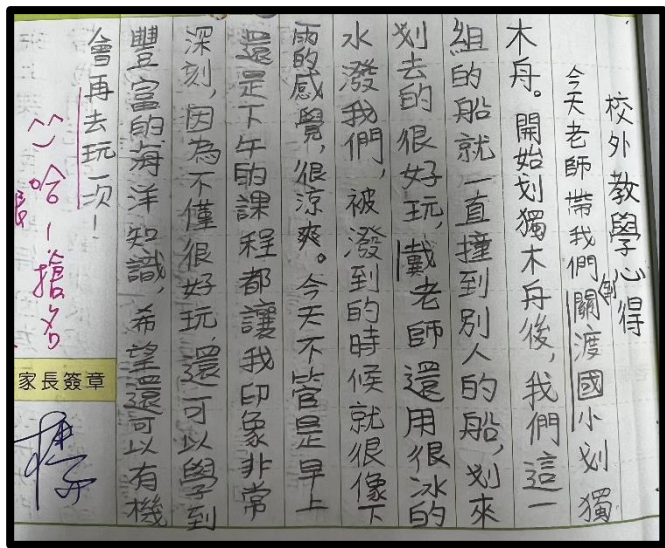 校外教學心得
今天老師帶我們到關渡國小划獨
木舟。開始划獨木舟後,我們這一
組的船就一直撞到別人的船,划來
划去的很好玩,戴老師還用很冰的
水潑我們,被潑到的時候就很像下
雨的感覺,很涼爽。今天不管是早上
還是下午的課程都讓我印象非常
深刻,因為不僅很好玩,還可以學到
豐富的海洋知識,希望還可以有機
會再去玩一次!
哈
家長簽章